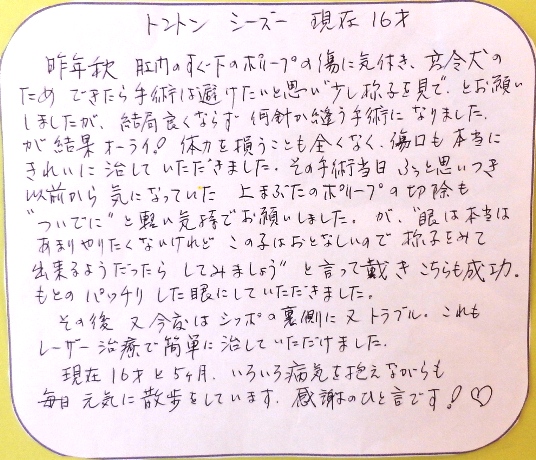 トントン シーズー 現在 16才
昨年秋 肛門のすぐ下のポリープの傷に気付き、高令犬の
ため できたら手術は避けたいと思い"少し様子を見て"とお願い
しましたが、結局良くならず 何針か縫う手術になりました.
が 結果オーライ! 体力を損うことも全くなく、傷口も本当に
きれいに治していただきました. その手術当日 ふっと思いつき
以前から気になっていた 上まぶたのポリープの切除も
"ついでに"と軽い気持でお願いしました。が、"眼は本当は
あまりやりたくないけれど この子はおとなしいので 様子をみて
出来るようだったら してみましょう"と言って戴き こちらも成功.
もとの パッチリ した眼にしていただきました。
その後 又今度は シッポの裏側に又トラブル. これも
レーザー治療で簡単に治していただけました.
現在16才と5ヶ月. いろいろ病気を抱えながらも
毎日 元気に散歩をしています. 感謝のひと言です! ♡